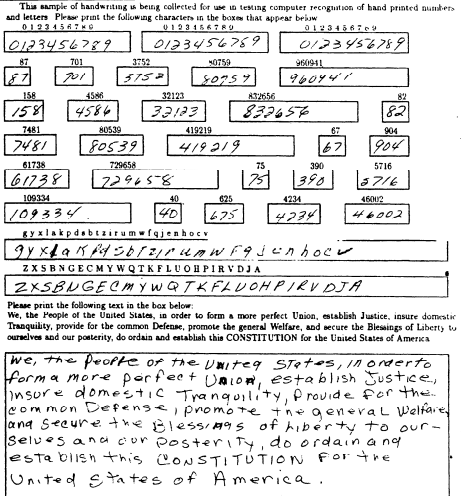 This sample of handwriting is being collected for use in testing computer recognition of hand printed numbers
and letters Please print the following characters in the boxes that appear below
0 1 2 3 4 5 6 7 8 9 0 1 2 3 4 5 6 7 8 9 0 1 2 3 4 5 6 7 8 9
0123456789 0123456789 0123456789
87 701 3752 80759 960941
87 701 3752 80759 960941
158 4586 32123 832656 82
158 4586 32123 832656 82
7481 80539 419219 67 904
7481 80539 419219 67 904
61738 729658 75 390 5716
61738 729658 75 390 5716
109334 40 625 4234 46002
109334 40 675 4234 46002
g y x l a k p d s b t z i r u m w f q j e n h o c v
gyxlakpdsbtzirumwfqjenhocv
Z X S B N G E C M Y W Q T K F L U O H P I R V D J A
ZXSBNGECMYWQTKFLUOHPIRVDJA
Please print the following text in the box below:
We, the People of the United States, in order to form a more perfect Union, establish Justice, insure domestic
Tranquility, provide for the common Defense, promote the general Welfare, and secure the Blessings of Liberty to
ourselves and our posterity, do ordain and establish this CONSTITUTION for the United States of America
We, the People of the United States, in order to
form a more perfect Union, establish Justice,
insure domestic Tranquility, Provide for the
common Defense, promote the general Welfare,
and secure the Blessings of Liberty to our-
selves and our posterity, do ordain and
establish this CONSTITUTION for the
United States of America.